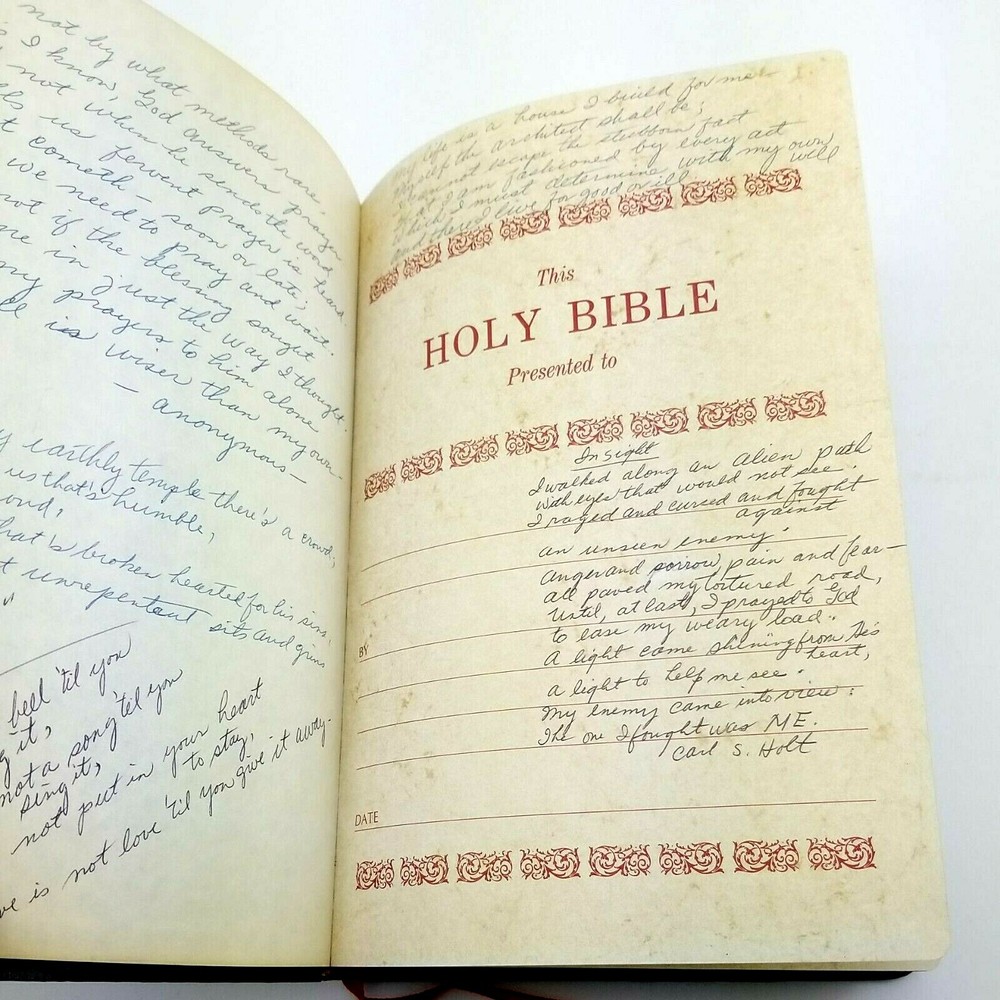 not by what methods rare,
I know, God answers prayer.
not when he sends the word
us fervent prayer is heard.
cometh - soon or late;
we need to pray and wait.
not if the blessing sought
in just the way I thought.
my prayers to him alone
is wiser than my own -
- anonymous -
earthly temple there's a crowd;
us that's humble,
that's broken hearted for his sins,
unrepentant sits and grins
bell 'til you
it;
not a song 'til you
sing it;
not put in your heart
to stay,
is not love 'til you give it away.
life is a house I build for me
the architect shall be;
not escape the stubborn fact
I am fashioned by every act
Which I must determine, with my own will
and there I live for good or ill
This
HOLY BIBLE
Presented to
Insight
I walked along an alien path
with eyes that would not see.
I raged and cursed and fought
against
an unseen enemy.
anger and sorrow, pain and fear—
all paved my tortured road,
Until, at last, I prayed to God
to ease my weary load.
A light came shining from His
heart,
a light to help me see.
My enemy came into view:
The one I fought was ME.
Carl S. Holt
BY
DATE